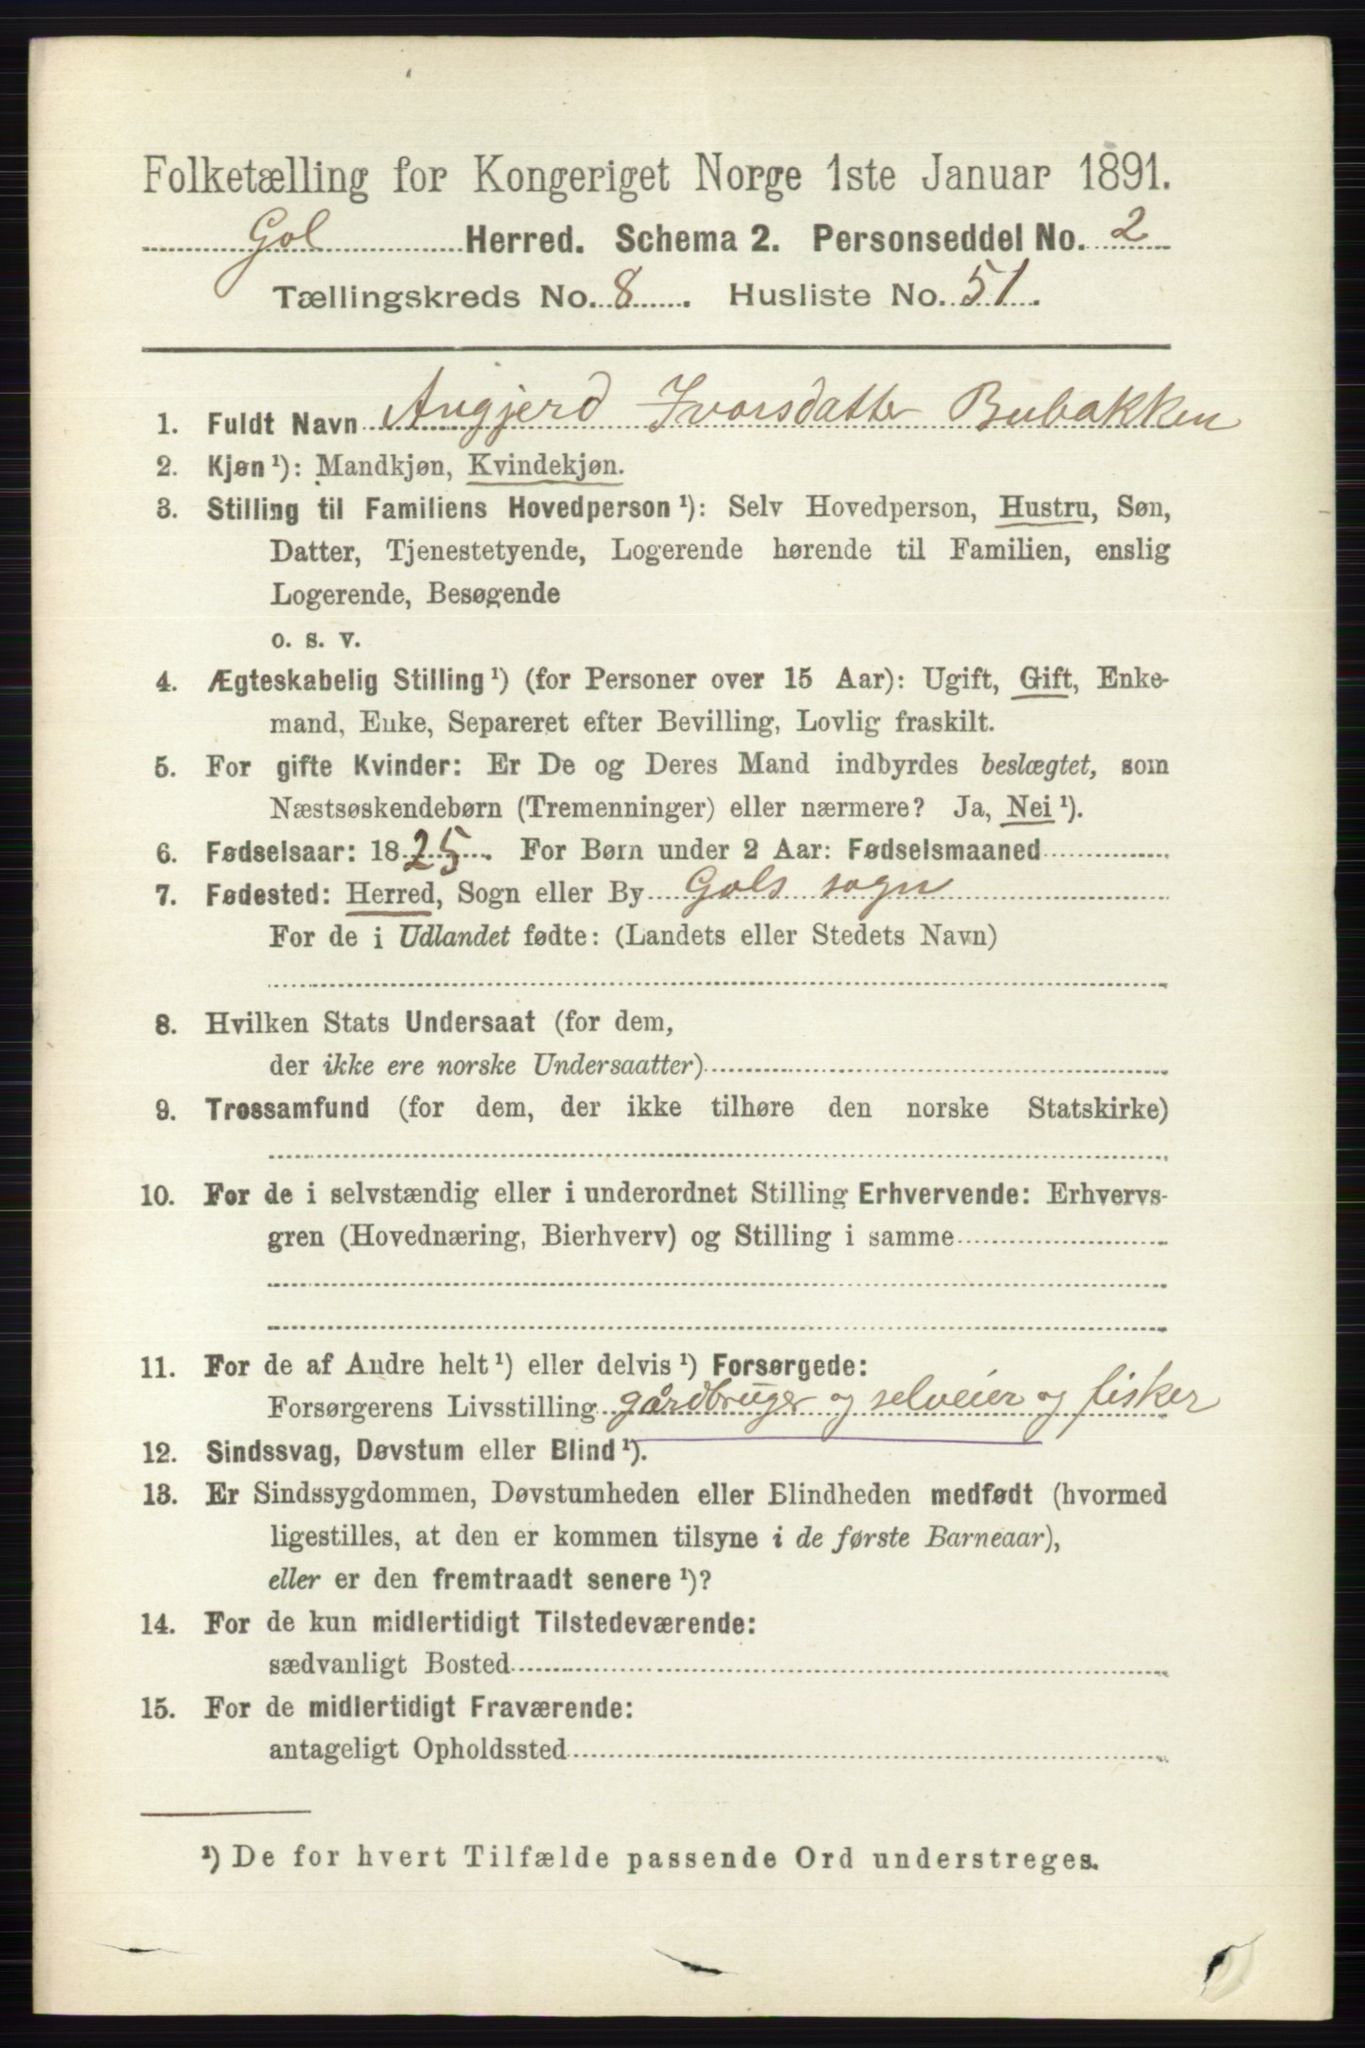 Folketælling for Kongeriget Norge 1ste Januar 1891.
Gol Herred. Schema 2. Personseddel No. 2
Tællingskreds No. 8. Husliste No. 51.
1. Fuldt Navn Angjerd Ivarsdatter Bubakken
2. Kjøn¹): Mandkjøn, Kvindekjøn.
3. Stilling til Familiens Hovedperson¹): Selv Hovedperson, Hustru, Søn,
Datter, Tjenestetyende, Logerende hørende til Familien, enslig
Logerende, Besøgende
o. s. v.
4. Ægteskabelig Stilling¹) (for Personer over 15 Aar): Ugift, Gift, Enke-
mand, Enke, Separeret efter Bevilling, Lovlig fraskilt.
5. For gifte Kvinder: Er De og Deres Mand indbyrdes beslægtet, som
Næstsøskendebørn (Tremenninger) eller nærmere? Ja, Nei¹).
6. Fødselsaar: 1825. For Børn under 2 Aar: Fødselsmaaned
7. Fødested: Herred, Sogn eller By Gols sogn
For de i Udlandet fødte: (Landets eller Stedets Navn)
8. Hvilken Stats Undersaat (for dem,
der ikke ere norske Undersaatter)
9. Trossamfund (for dem, der ikke tilhøre den norske Statskirke)
10. For de i selvstændig eller i underordnet Stilling Erhvervende: Erhvervs-
gren (Hovednæring, Bierhverv) og Stilling i samme
11. For de af Andre helt¹) eller delvis¹) Forsørgede:
Forsørgerens Livsstilling gårdbruger og selveier og fisker
12. Sindssvag, Døvstum eller Blind¹).
13. Er Sindssygdommen, Døvstumheden eller Blindheden medfødt (hvormed
ligestilles, at den er kommen tilsyne i de første Barneaar),
eller er den fremtraadt senere¹)?
14. For de kun midlertidigt Tilstedeværende:
sædvanligt Bosted
15. For de midlertidigt Fraværende:
antageligt Opholdssted
¹) De for hvert Tilfælde passende Ord understreges.